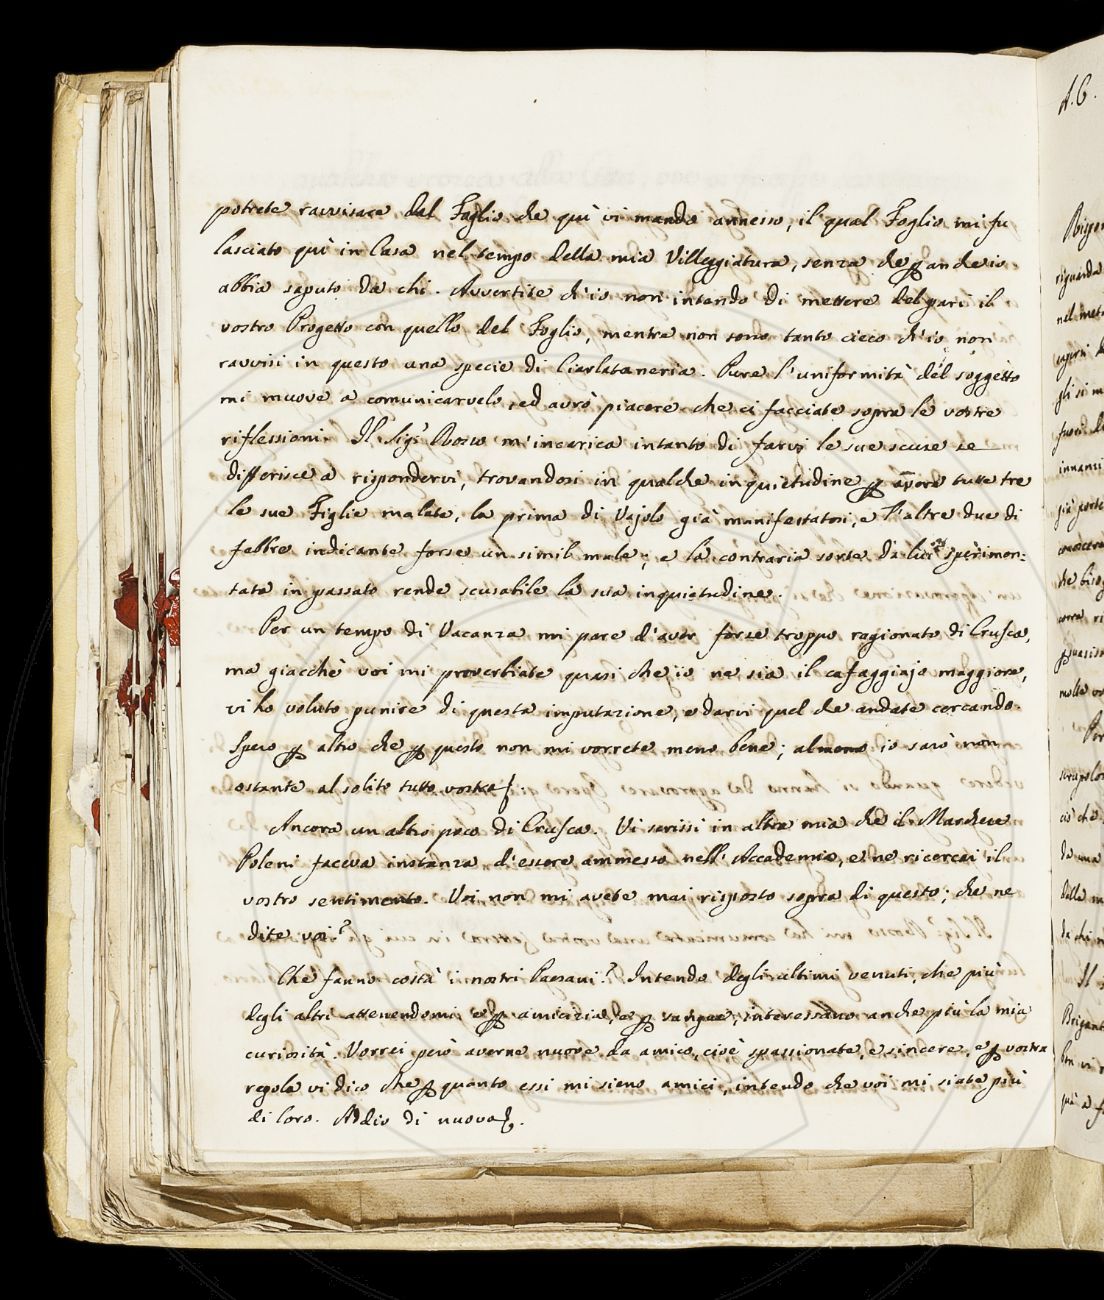 potrete ravvisare dal Foglio che quì vi mando annesso, il qual Foglio mi fu
lasciato quì in Casa nel tempo della mia Villeggiatura, senza che p anche io
abbia saputo da chi. Avvertite ch'io non intendo di mettere del pari il
vostro Progetto con quello del Foglio, mentre non sono tanto cieco ch'io non
ravvisi in questo una specie di Ciarlataneria. Pure l'uniformità del soggetto
mi muove a comunicarvelo, ed avrò piacere che ci facciate sopra le vostre
riflessioni. Il Sigr Bosco m'incarica intanto di farvi le sue scuse se
differisce a rispondervi, trovandosi in qualche inquietudine p avere tutte tre
le sue Figlie malate, la prima di Vajolo già manifestatosi, e l'altre due di
febbre indicante forse un simil male; e la contraria sorte da lui sperimen:
tata in passato rende scusabile la sua inquietudine.
Per un tempo di Vacanza mi pare d'aver forse troppo ragionato di Crusca,
ma giacchè voi mi proverbiate quasi che io ne sia il cafaggiajo maggiore,
vi ho voluto punire di questa imputazione, e darvi quel che andate cercando.
Spero p altro che p questo non mi vorrete meno bene; almeno io sarò non
ostante al solito tutto vostro
Ancora un altro poco di Crusca. Vi scrissi in altra mia che il Marchese
Poleni faceva instanza d'essere ammesso nell'Accademia, e ne ricercai il
vostro sentimento. Voi non mi avete mai risposto sopra di questo; che ne
dite voi?
Che fanno costà i nostri Paesani? Intendo degli ultimi venuti, che più
degli altri attenendomi e p amicizia, e p sangue, interessano anche più la mia
curiosità. Vorrei però averne nuove da amico, cioè spassionate, e sincere, e p vostra
regola vi dico che p quanto essi mi sieno amici, intendo che voi mi siate più
di loro. Addio di nuovo.